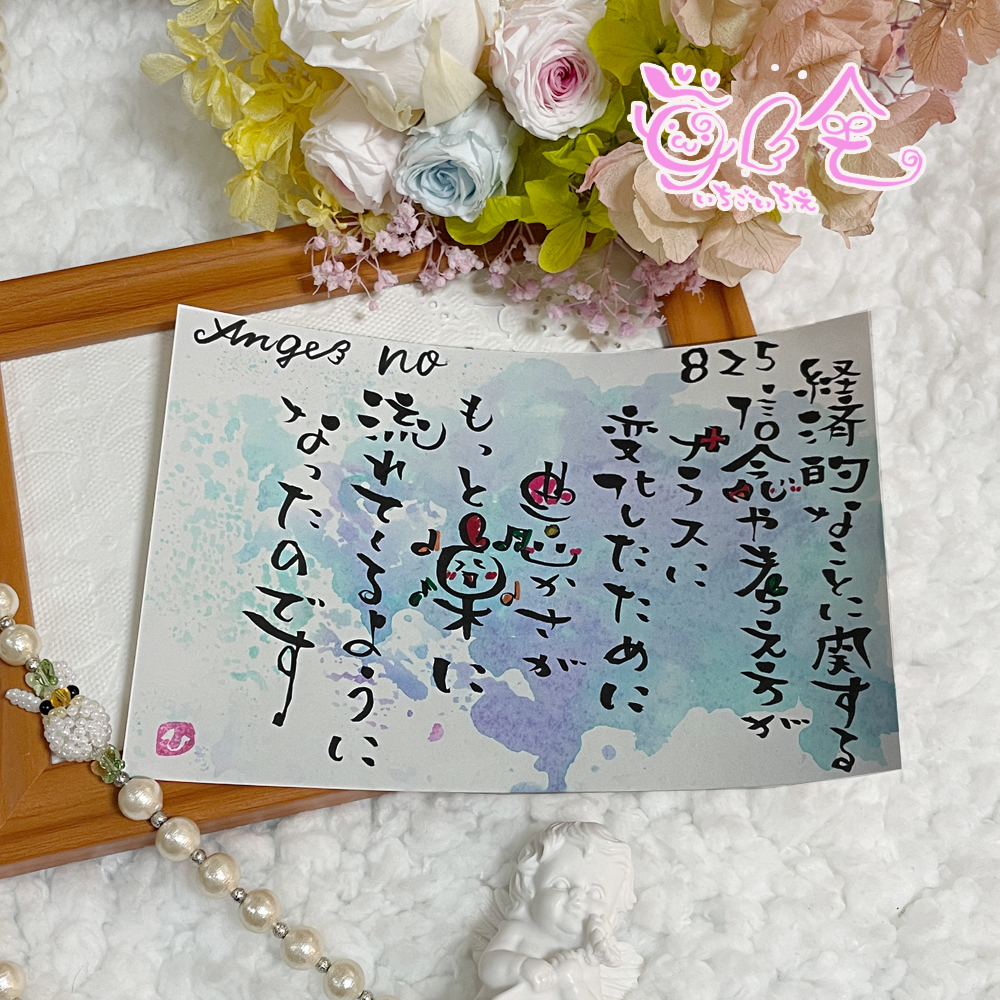 Angel no 825
経済的なことに関する
信念や考え方が
プラスに
変化したために
豊かさが
もっと楽に
流れてくるように
なったのです
いちごいちえ